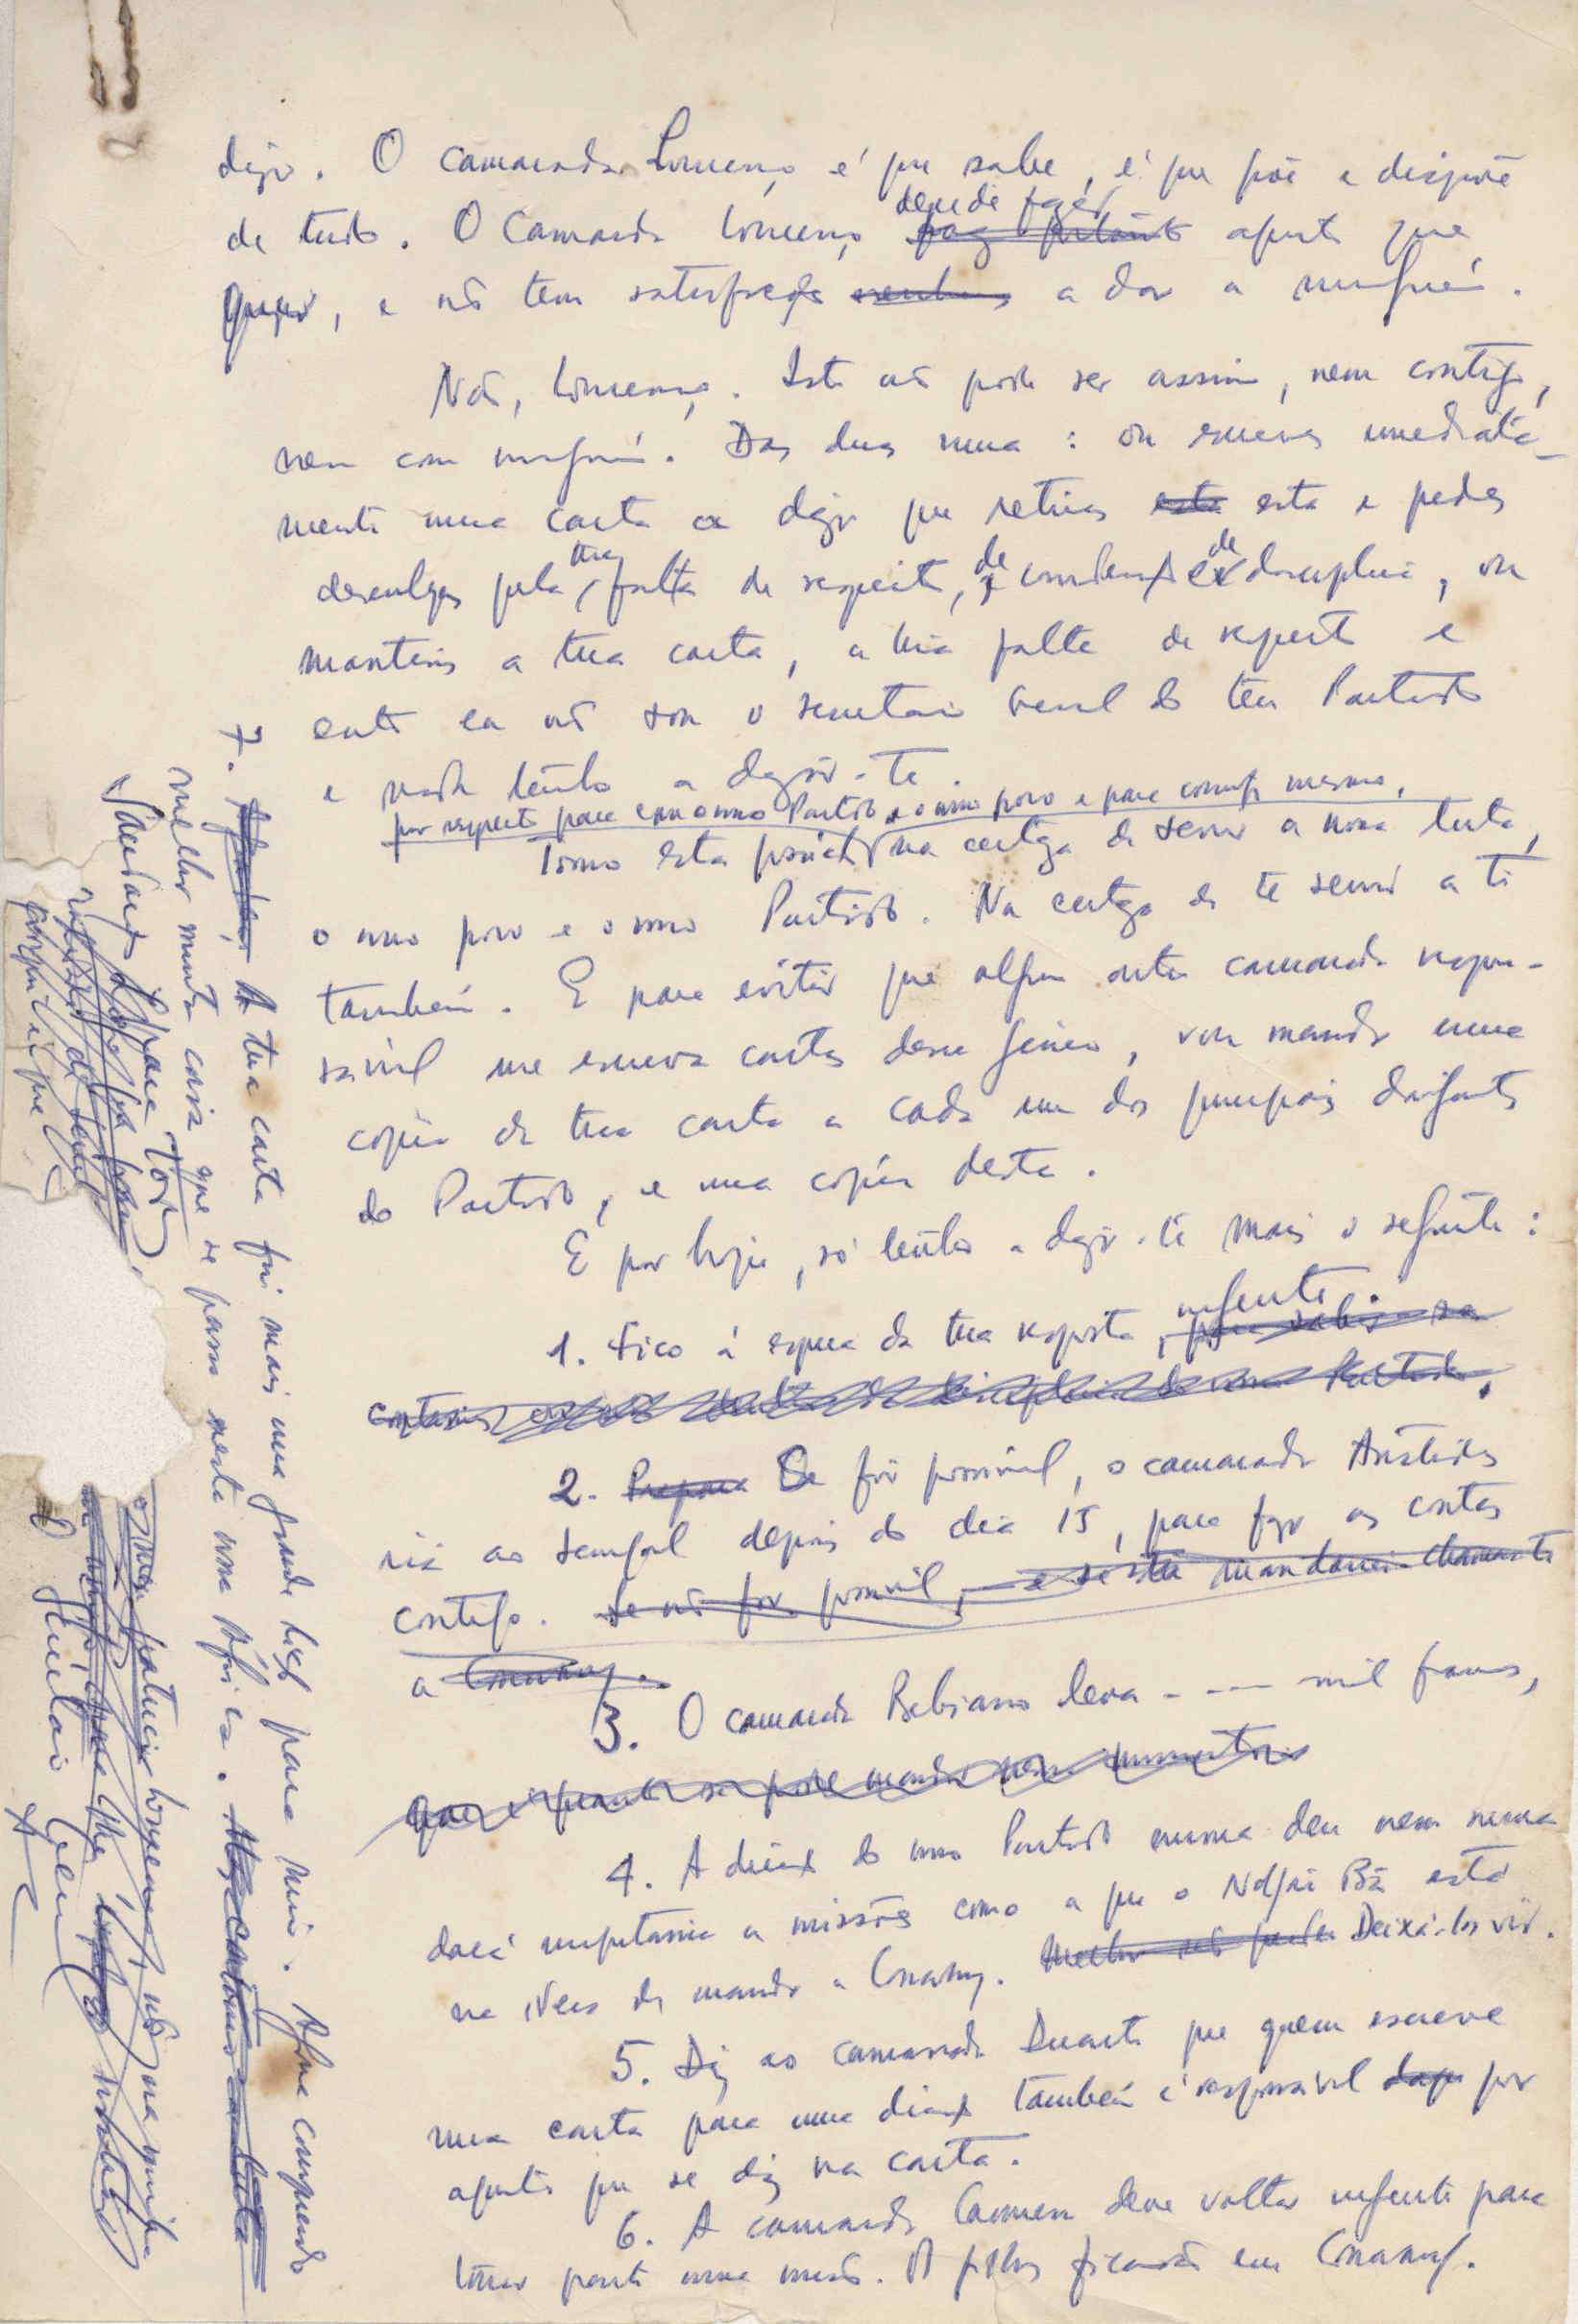 digo. O camarada Lourenço é que sabe, é que põe e dispõe
decide fazer
de tudo. O camarada Lourenço faz portanto aquilo que
quiser, e não tem satisfação nenhuma a dar a ninguém.
Não, Lourenço. Isto não pode ser assim, nem contigo,
nem com ninguém. Das duas uma: ou escreves imediata-
mente uma carta a dizer que retiras esta esta e pedes
tua de de
desculpas pela falta de respeito, consciência e disciplina, ou
mantens a tua carta, a tua falta de respeito e
então eu não sou o secretário geral do teu Partido
e nada tenho a dizer-te.
por respeito para com o nosso Partido e o nosso povo e para comigo mesmo,
Tomo esta posição na certeza de servir a nossa luta,
o nosso povo e o nosso Partido. Na certeza de te servir a ti
também. E para evitar que algum outro camarada respon-
sável me escreva cartas desse género, vou mandar uma
cópia da tua carta a cada um dos principais dirigentes
do Partido, e uma cópia desta.
E por hoje, só tenho a dizer-te mais o seguinte:
urgente.
1. Fico à espera da tua resposta,
2. Prepara Se for possível, o camarada Aristides
irá ao Senegal depois do dia 15, para fazer as contas
contigo. Se não for possível, mandarei chamar-te
a Conakry.
3. O camarada Bebiano leva - - - mil francos,
4. A direcção do nosso Partido nunca deu nem nunca
dará importância a missões como a que o Ndjai Bâ está
na ideia de mandar a Conakry. Deixá-los vir.
5. Diz ao camarada Duarte que quem escreve
uma carta para uma direcção também é responsável por
aquilo que se diz na carta.
6. A camarada Carmen deve voltar urgente para
tomar parte numa missão. Os filhos ficarão em Conakry.
7. A tua carta foi mais uma grande lição para mim. Agora compreendo
melhor muita coisa que se passa nesta nossa África. Mas continuo
Saudações para todos
porque é que
o meu patrício Lourenço, não na minha